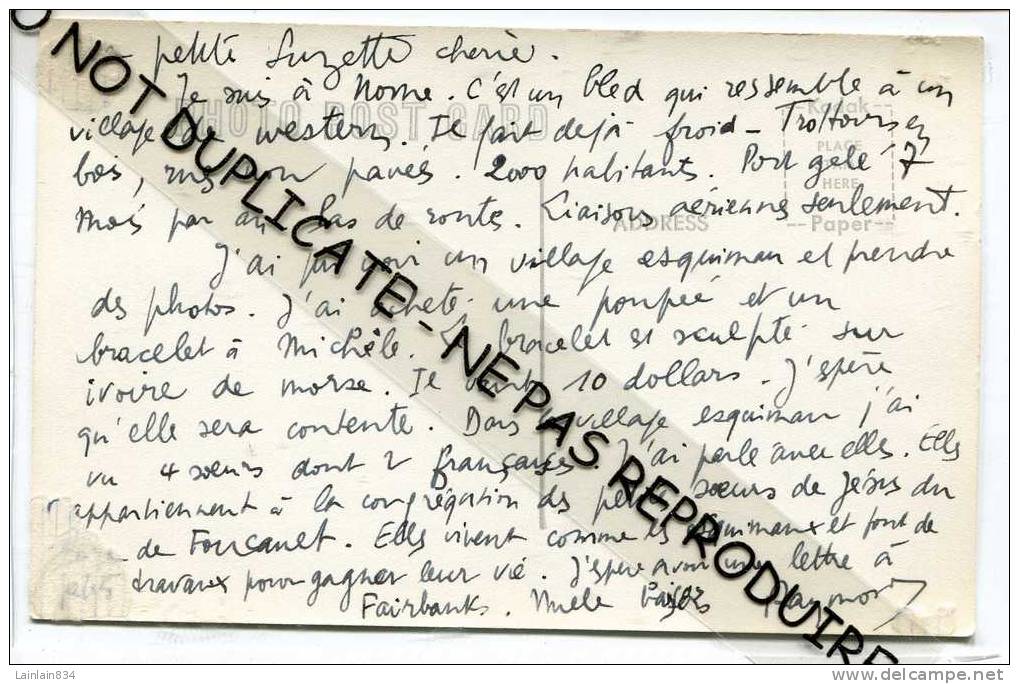 petite Suzette cherie.
Je suis à Nome. C'est un bled qui ressemble à un
village de western. Il fait dejà froid - Trottoirs en
bois, rues non pavés. 2000 habitants. Port gelé 7
mois par an. Pas de routes. Liaisons aériennes seulement.
J'ai pu voir un village esquimau et prendre
des photos. J'ai acheté une poupée et un
bracelet à Michèle. Le bracelet est sculpté sur
ivoire de morse. Il vaut 10 dollars. J'espère
qu'elle sera contente. Dans le village esquimau j'ai
vu 4 soeurs dont 2 françaises. J'ai parlé avec elles. Elles
appartiennent à la congrégation des petites soeurs de Jésus du
de Foucault. Elles vivent comme les esquimaux et font de
travaux pour gagner leur vie. J'espère avoir une lettre à
Fairbanks. Mille baisers Raymond
PHOTO POST CARD
ADDRESS
--Kodak--
PLACE
HERE
--Paper--
DO NOT DUPLICATE - NE PAS REPRODUIRE
Lainlain834
delcampe.net